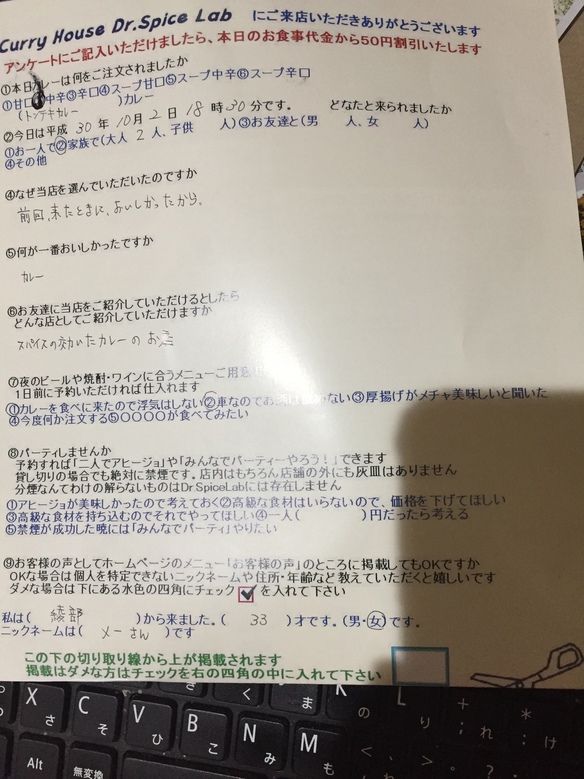 Curry House Dr.Spice Lab にご来店いただきありがとうございます
アンケートにご記入いただけましたら、本日のお食事代金から50円割引いたします
①本日カレーは何をご注文されましたか
①甘口 中辛③辛口④スープ甘口⑤スープ中辛⑥スープ辛口
(トンテキカレー )カレー
②今日は平成 30 年 10 月 2 日 18 時 30 分です。 どなたと来られましたか
①お一人で②家族で(大人 2 人、子供 人)③お友達と(男 人、女 人)
④その他
④なぜ当店を選んでいただいたのですか
前回、来たときに、おいしかったから。
⑤何が一番おいしかったですか
カレー
⑥お友達に当店をご紹介していただけるとしたら
どんな店としてご紹介していただけますか
スパイスの効いたカレーのお店
⑦夜のビールや焼酎・ワインに合うメニューご用意
1日前に予約いただければ仕入れます
①カレーを食べに来たので浮気はしない②車なのでお酒は飲めない③厚揚げがメチャ美味しいと聞いた
④今度何か注文する⑤〇〇〇〇が食べてみたい
⑧パーティしませんか
予約すれば「二人でアヒージョ」や「みんなでパーティーやろう!」できます
貸し切りの場合でも絶対に禁煙です。店内はもちろん店舗の外にも灰皿はありません
分煙なんてわけの解らないものはDr.SpiceLabには存在しません
①アヒージョが美味しかったので考えておく②高級な食材はいらないので、価格を下げてほしい
③高級な食材を持ち込むのでそれでやってほしい④一人( )円だったら考える
⑤禁煙が成功した暁には「みんなでパーティ」やりたい
⑨お客様の声としてホームページのメニュー「お客様の声」のところに掲載してもOKですか
OKな場合は個人を特定できないニックネームや住所・年齢など教えていただくと嬉しいです
ダメな場合は下にある水色の四角にチェック を入れて下さい
私は( 綾部 )から来ました。( 33 )才です。(男・女)です。
ニックネームは( メーさん )です
この下の切り取り線から上が掲載されます
掲載はダメな方はチェックを右の四角の中に入れて下さい
X さ
C そ
V ひ
B こ
N み
M も
K の
L り
+ ; れ
* : け
Alt
無変換